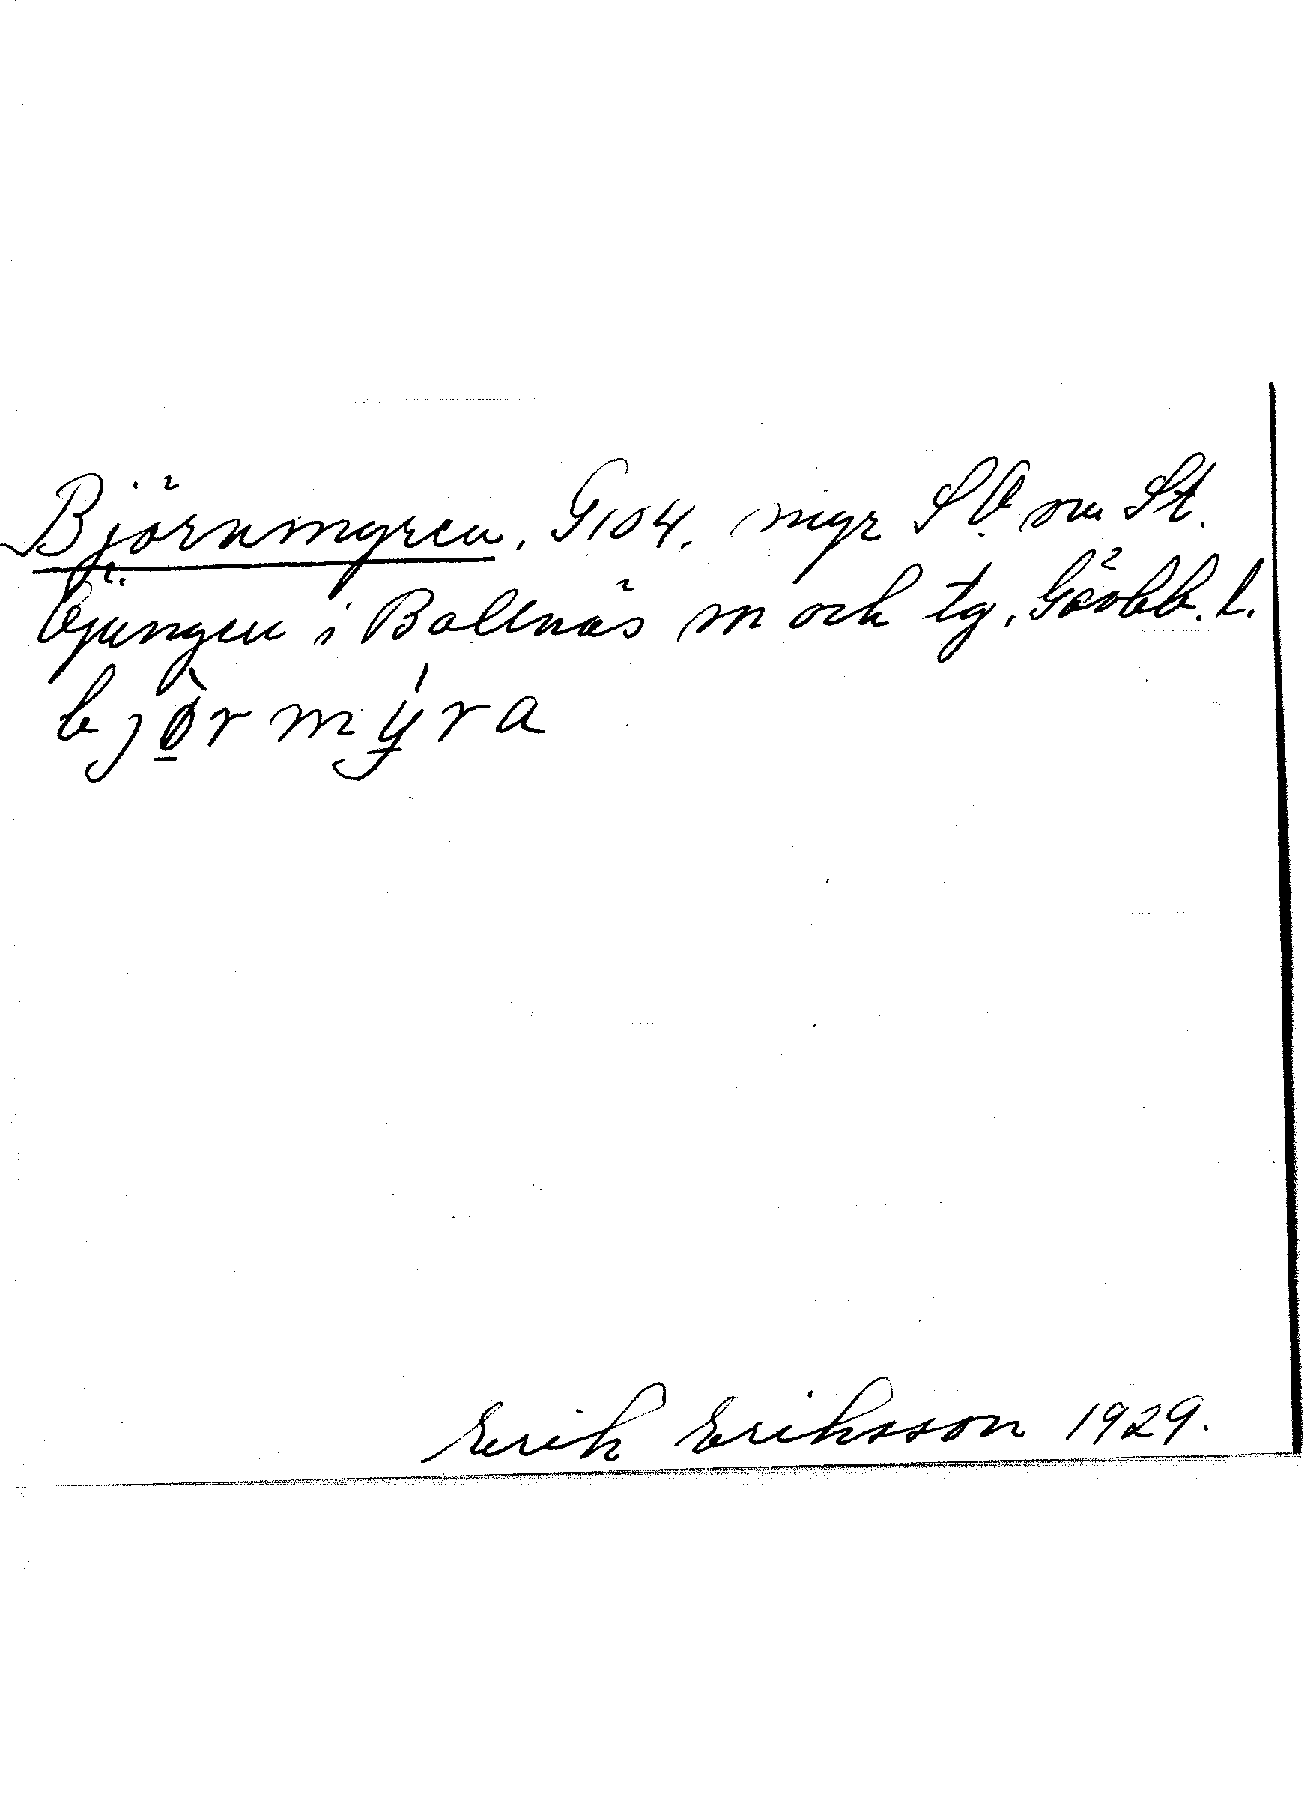 Björnmyren, G104, myr S.V om St.
Öjungen i Bollnäs sn och tg, Gävleb. l.
bjø̀rmýra
Erik Eriksson 1929.